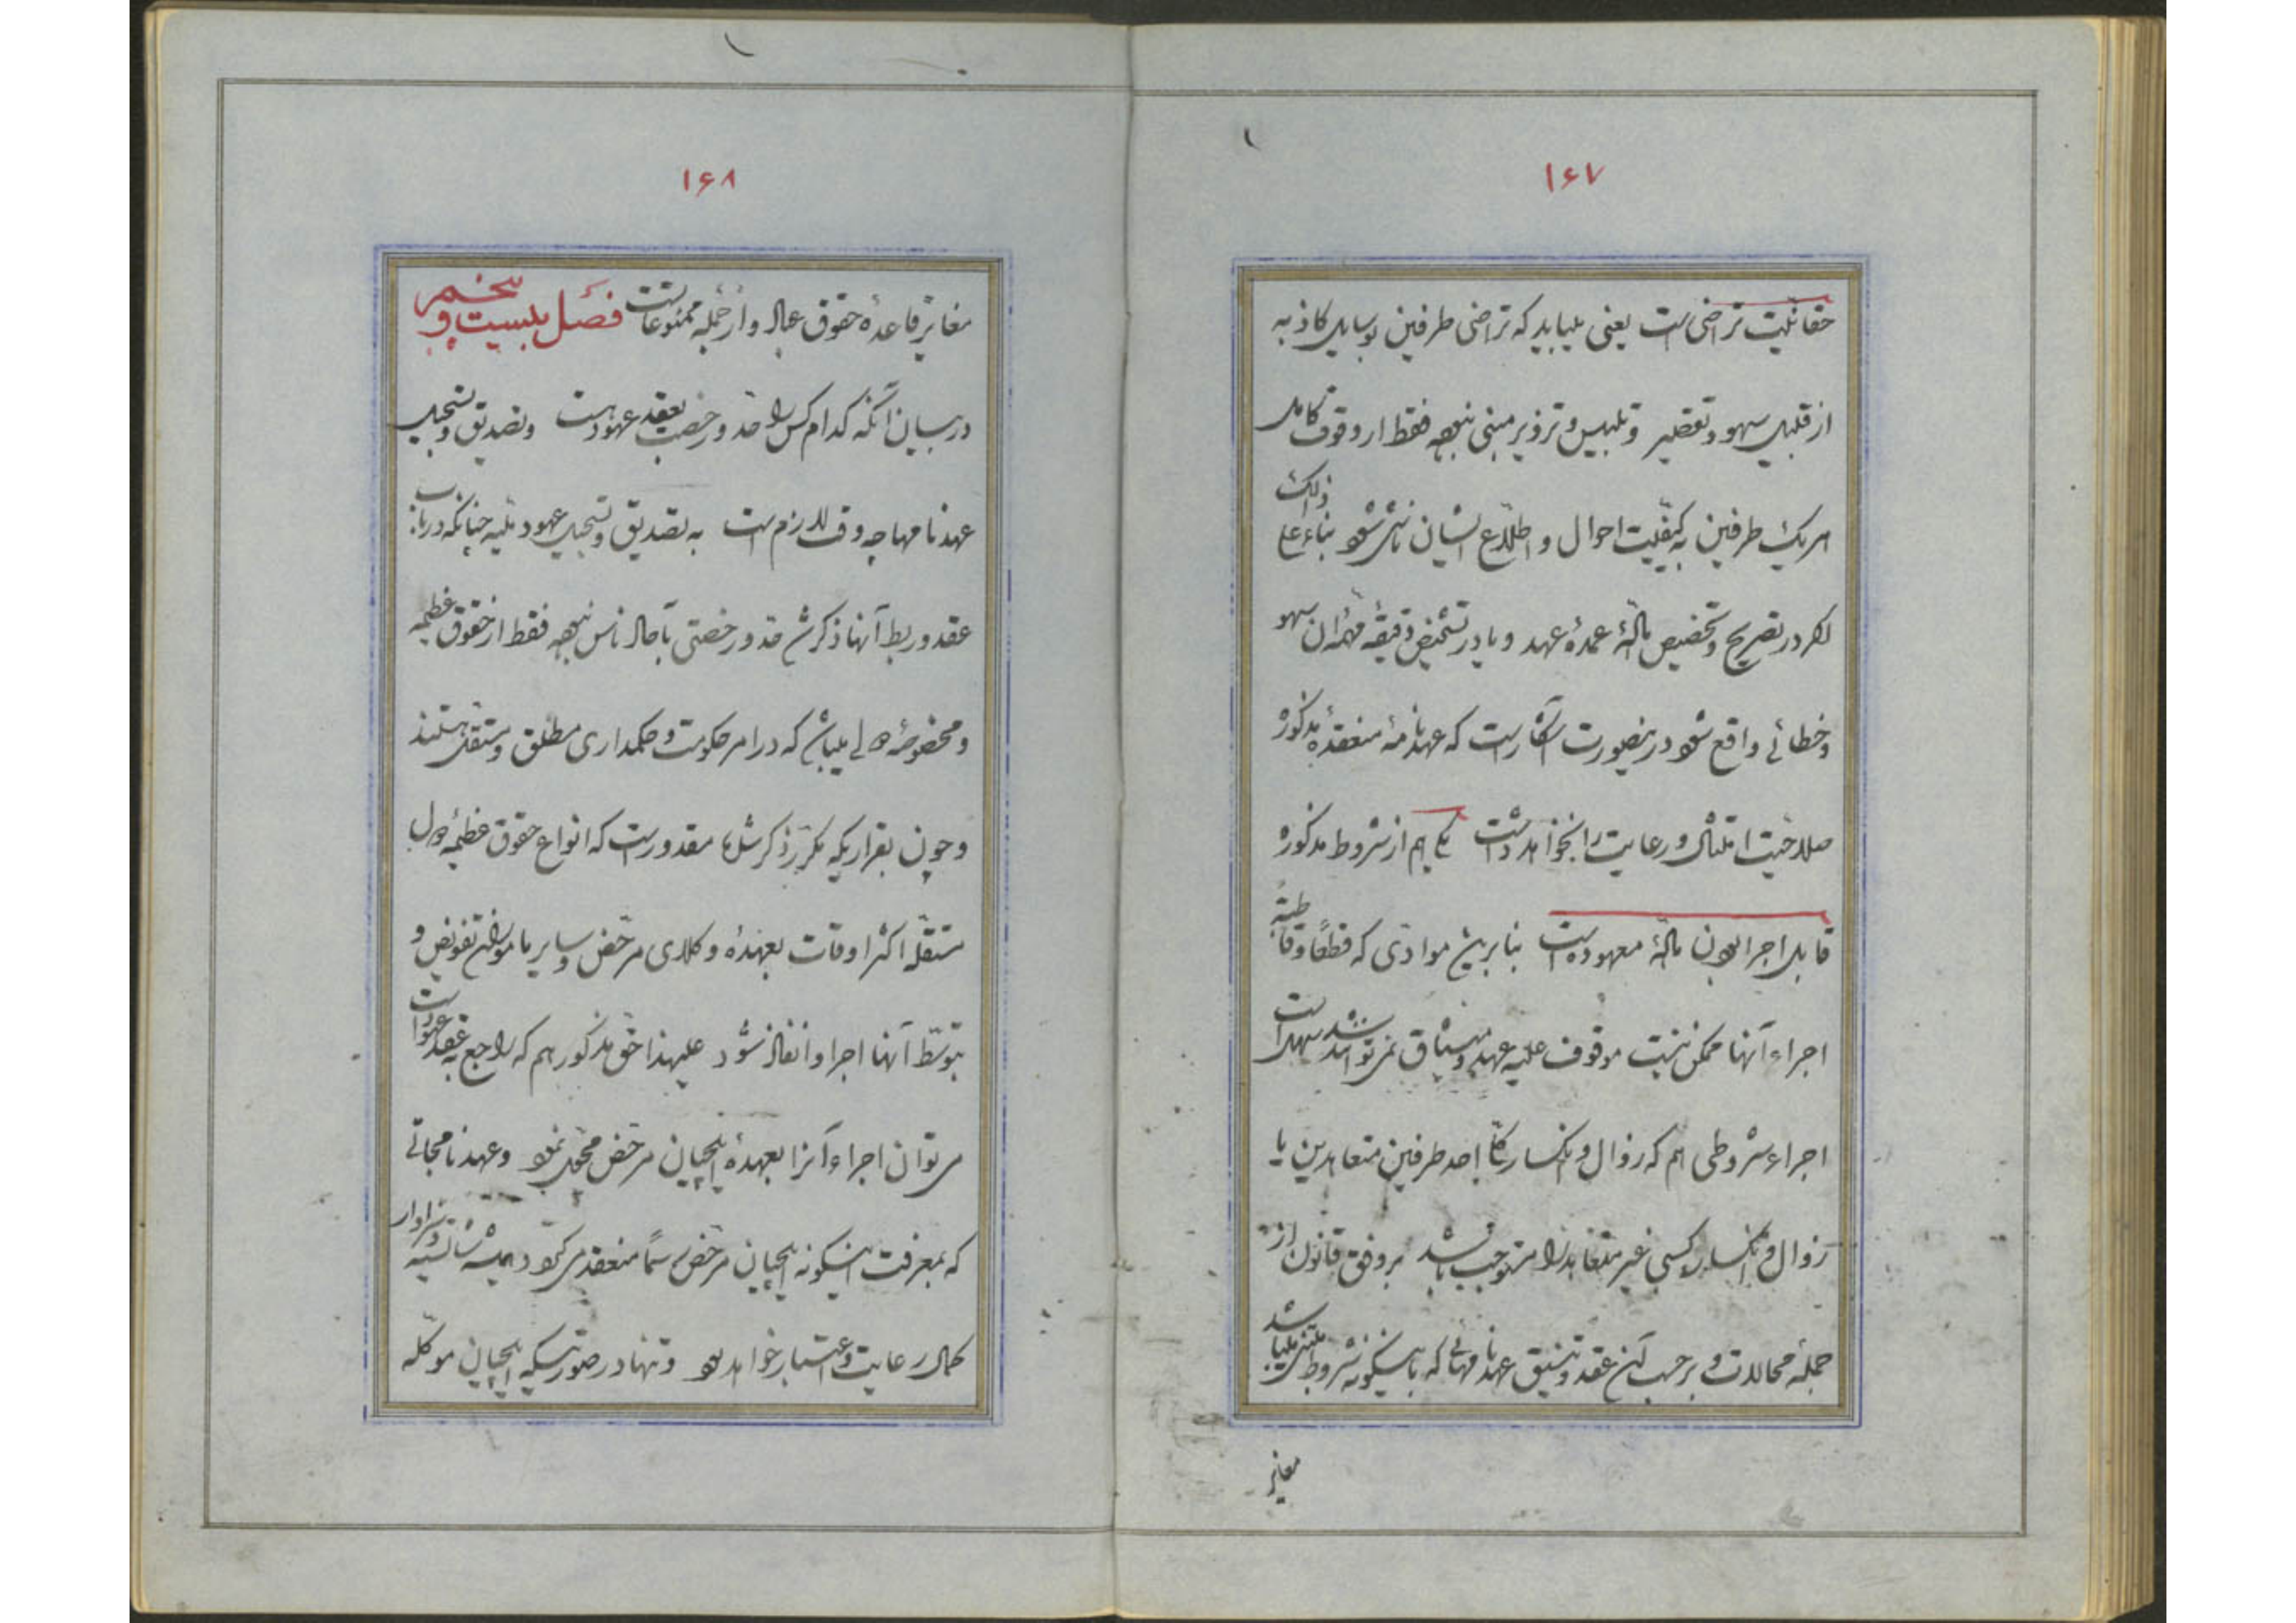 ۱۶۷
حقانیّت تراضی است یعنی میباید که تراضی طرفین بوسایل کاذبه
از قبیل سهو و تقصیر و تلبیس و تزویر مبنی نبوده فقط از وقوف کامل
هر یک طرفین به کیفیّت احوال و اطلاع ایشان ناشی شود بناء علی ذلک
اگر در تصریح و تخصیص مادّهٔ عمدهٔ عهد و یا در تشخیص دقیقهٔ مهمّهٔ آن سهو
و خطائی واقع شود در اینصورت آشکار است که عهدنامهٔ منعقدهٔ مذکوره
صلاحیّت امتثال و رعایت را نخواهد داشت یکی هم از شروط مذکوره
قابل اجرا بودن مادّهٔ معهوده است بنابرین موادّی که قطعًا و قاطبةً
اجراء آنها ممکن نیست موقوف علیه عهد و میثاق نمی‌تواند شد
اجراء شروطی هم که زوال و انکسار احد طرفین متعاهدین یا
زوال و انکسار کسی غیر متعاهد را مستوجب باشد بر وفق قانون از
جملهٔ محالات و بر حسب آن عقد و تنسیق عهدنامهائی که باینگونه شروط مبتنی باشد
مغایر
۱۶۸
مغایر قاعدهٔ حقوق عباد و از جمله ممنوعات است فصل بیست و پنجم
در بیان آنکه کدام کس را قدرت و رخصت بعقد عهود است و تصدیق و تسجیل
عهدنامها چه وقت لازم است به تصدیق و تسجیل عهود ملّیه چنانکه در باب
عقد و ربط آنها ذکر شد قدرت و رخصتی بآحاد ناس نبوده فقط از حقوق عظیمه
و مخصوصهٔ دولی میباشد که در امر حکومت و حکمداری مطلق و مستقل هستند
و چون بقراریکه مکرّر ذکر شده مقدور است که انواع حقوق عظیمهٔ دول
مستقلّه اکثر اوقات بعهدهٔ وکلای مرخّص و سایر مامورین تفویض و
بتوسّط آنها اجرا و انفاذ شود علیهذا حقّ مذکور هم که راجع به عقد عهود است
می‌توان اجراء آنرا بعهدهٔ ایلچیان مرخّص محوّل نمود و عهدنامجاتی
که بمعرفت اینگونه ایلچیان مرخّص رسمًا منعقد می‌گردد همیشه شایسته و سزاوار
کمال رعایت و اعتبار خواهد بود و تنها در صورتیکه ایلچیان موکّله